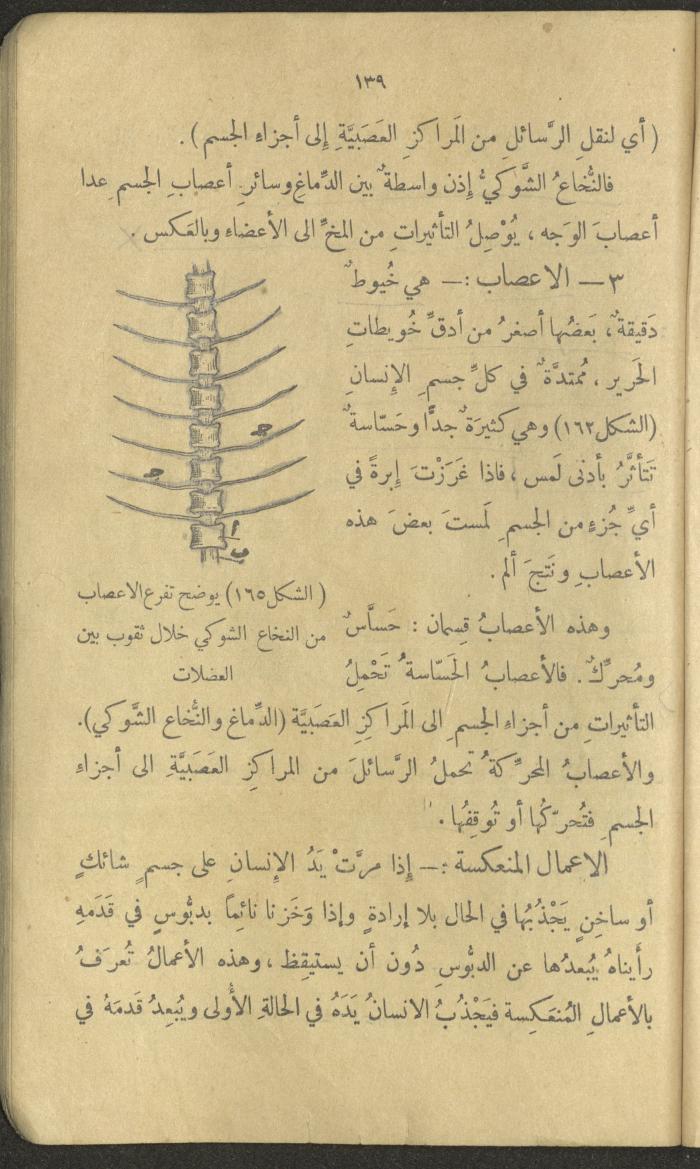 ١٣٩
( أي لنقلِ الرَّسائلِ من المَراكزِ العَصَبيَّةِ إِلى أجزاءِ الجسم ) .
فالنُّخاعُ الشَّوكيُّ إِذن واسطةٌ بين الدِّماغِ وسائرِ أعصابِ الجسمِ عدا
أعصابَ الوَجه ، يُوْصِلُ التأثيراتِ من المخِّ الى الأعضاءِ وبالعَكس .
٣ — الاعصاب : — هي خُيوطٌ
دَقيقةٌ ، بَعضُها أصغرُ من أدقِّ خُويطاتِ
الحَرير ، مُمتدَّةٌ في كلِّ جسمِ الإِنسانِ
(الشكل ١٦٢) وهي كثيرَةٌ جدًّا وحَسّاسةٌ
تَتأثَّرُ بأدنى لَمس ، فاذا غَرَزْتَ إِبرةً في
أيِّ جُزءٍ من الجسمِ لَمستَ بعضَ هذه
الأعصابِ ونَتجَ ألم .
ج
ج
ا
ب
( الشكل ١٦٥ ) يوضح تفرع الاعصاب
من النخاع الشوكي خلال ثقوب بين
العضلات
وهذه الأعصابُ قِسمان : حَسَّاسٌ
ومُحرِّكٌ . فالأعصابُ الحَسّاسةُ تَحْمِلُ
التأثيراتِ من أجزاءِ الجسمِ الى المَراكِزِ العَصَبيَّة (الدِّماغ والنُّخاع الشَّوكي).
والأعصابُ المحرِّكةُ تحملُ الرَّسائلَ من المراكِزِ العَصَبيَّةِ الى أجزاءِ
الجسمِ فتُحرّكُها أو تُوقِفُها .
الاعمال المنعكسة : — إِذا مرَّتْ يَدُ الإِنسانِ على جسمٍ شائكٍ
أو ساخِنٍ يَجْذُبُها في الحال بلا إرادةٍ وإذا وَخَزنا نائِماً بدبُّوسٍ في قَدَمهِ
رأيناهُ يُبعدُها عن الدبُّوسِ دُون أن يستيقِظ ، وهذه الأعمالُ تُعرَفُ
بالأعمالِ المُنعَكِسة فيَجْذُبُ الانسانُ يَدَهُ في الحالةِ الأُولى ويُبعِدُ قَدمَهُ في